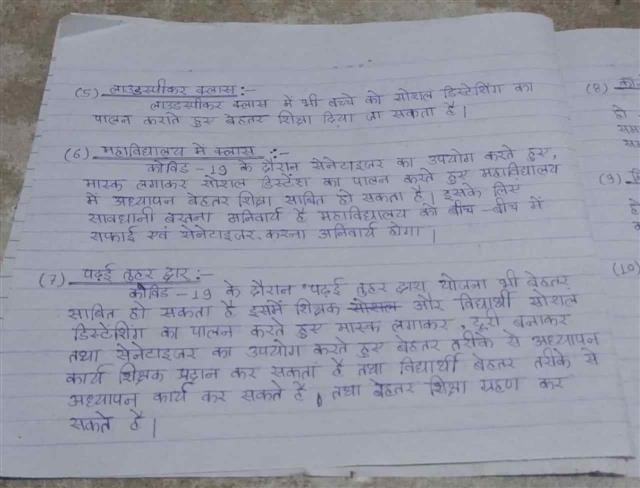 (5) लाउडस्पीकर क्लास :-
लाउडस्पीकर क्लास में भी बच्चे को सोशल डिस्टेसिंग का
पालन कराते हुए बेहतर शिक्षा दिया जा सकता है।
(6) महाविद्यालय में क्लास :-
कोविड - 19 के दौरान सेनेटाइजर का उपयोग करते हुए,
मास्क लगाकर सोशल डिस्टेंश का पालन करते हुए महाविद्यालय
में अध्यापन बेहतर शिक्षा साबित हो सकता है। इसके लिए
सावधानी बरतना अनिवार्य है महाविद्यालय को बीच - बीच में
सफाई एवं सेनेटाइजर करना अनिवार्य होगा।
(7) पढ़ई तुहर द्वार :-
कोविड - 19 के दौरान "पढ़ई तुहर द्वारा योजना भी बेहतर
साबित हो सकता है इसमें शिक्षक सोशल और विद्यार्थी सोशल
डिस्टेसिंग का पालन करते हुए मास्क लगाकर, दूरी बनाकर
तथा सेनेटाइजर का उपयोग करते हुए बेहतर तरीके से अध्यापन
कार्य शिक्षक प्रदान कर सकता है तथा विद्यार्थी बेहतर तरीके से
अध्यापन कार्य कर सकते है, तथा बेहतर शिक्षा ग्रहण कर
सकते है।
(8)
हो
(9)
(10)